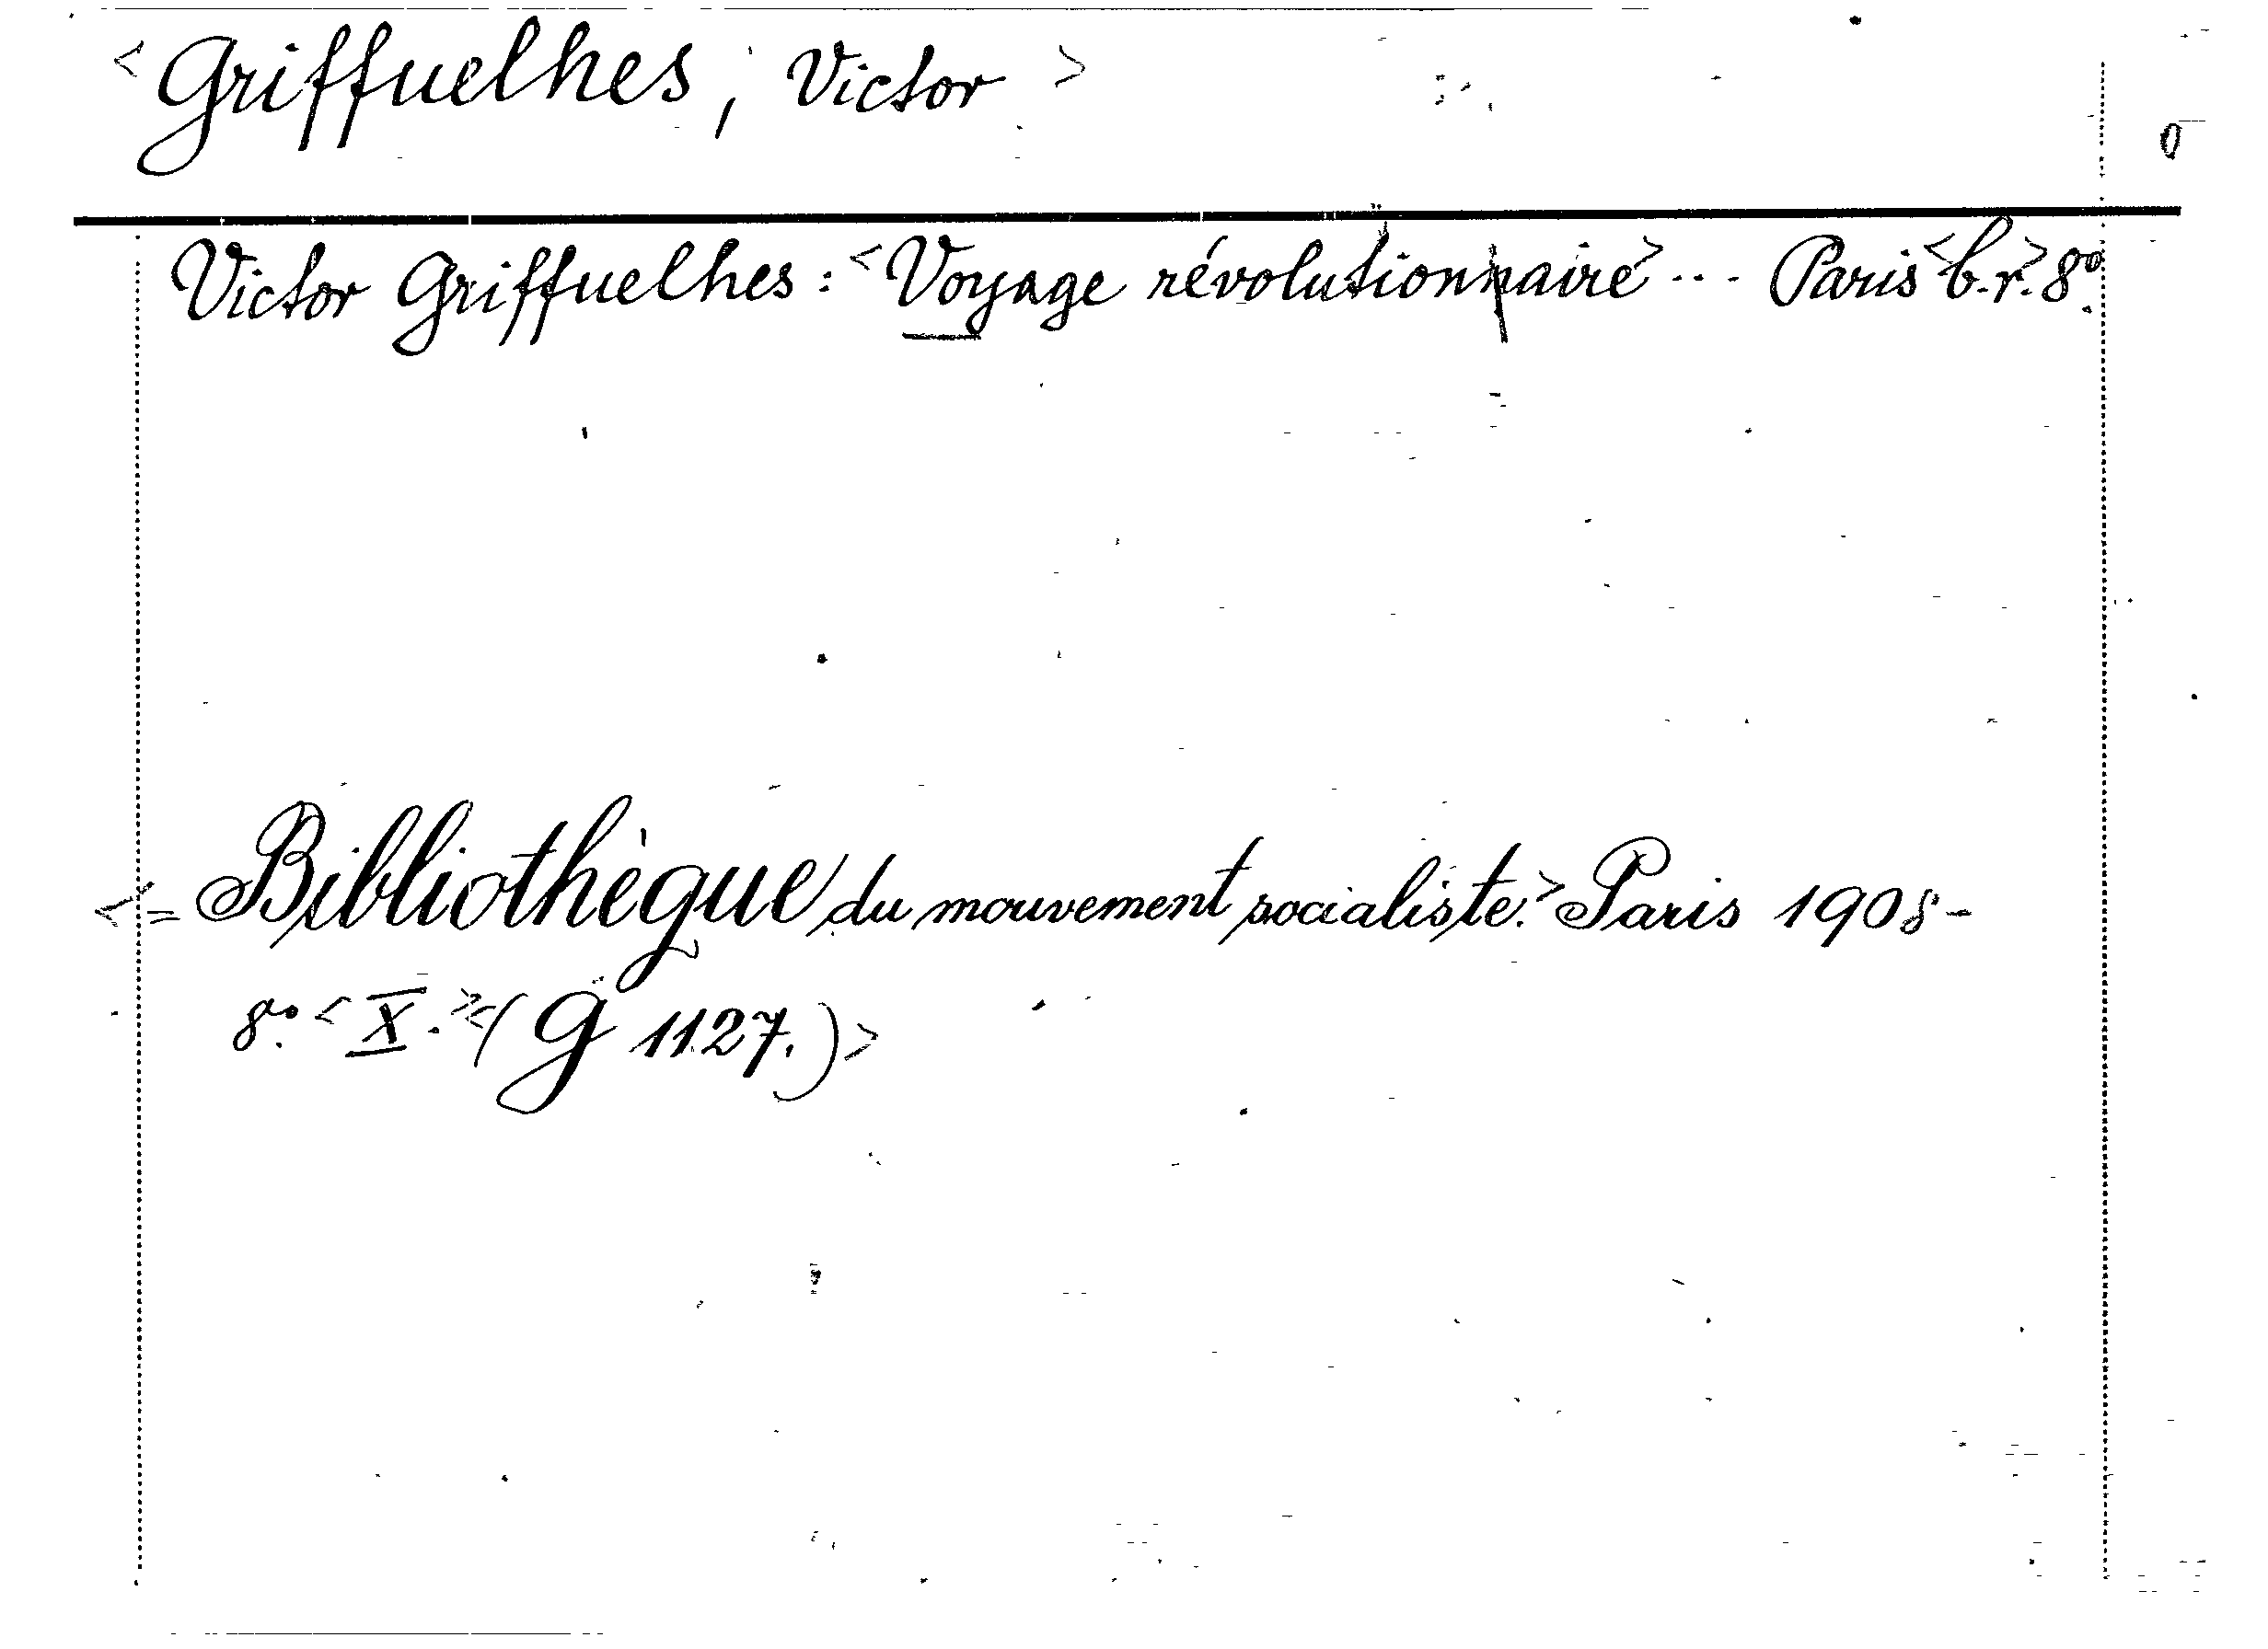 <Griffuelhes, Victor>
Victor Griffuelhes: <Voyage révolutionnaire> ... Paris <b.r.> 8º.
<= Bibliothèque du mouvement socialiste.> Paris 1908-
8º. <X.> <(G 1127.)>